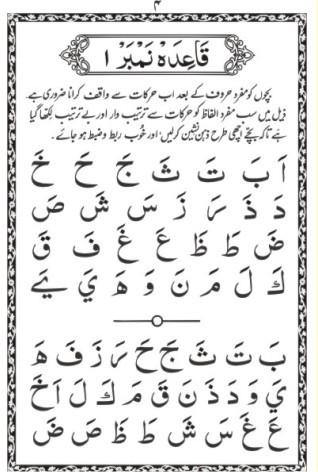 ۴
قَاعِدَہ نَمبَر ۱
بچوں کو مفرد حروف کے بعد اب حرکات سے واقف کرانا ضروری ہے۔
ذیل میں سب مفرد الفاظ کو حرکات سے ترتیب وار اور بے ترتیب لکھا گیا
ہے تاکہ بچے اچھی طرح ذہن نشین کرلیں اور خوب ربط و ضبط ہو جائے۔
اَ بَ تَ ثَ جَ حَ خَ
دَ ذَ رَ زَ سَ شَ صَ
ضَ طَ ظَ عَ غَ فَ قَ
كَ لَ مَ نَ وَ هَ يَ ےَ
بَ تَ ثَ جَ حَ رَ زَ فَ هَ
يَ وَ دَ ذَ نَ قَ مَ كَ لَ اَ خَ
عَ غَ سَ شَ طَ ظَ صَ ضَ